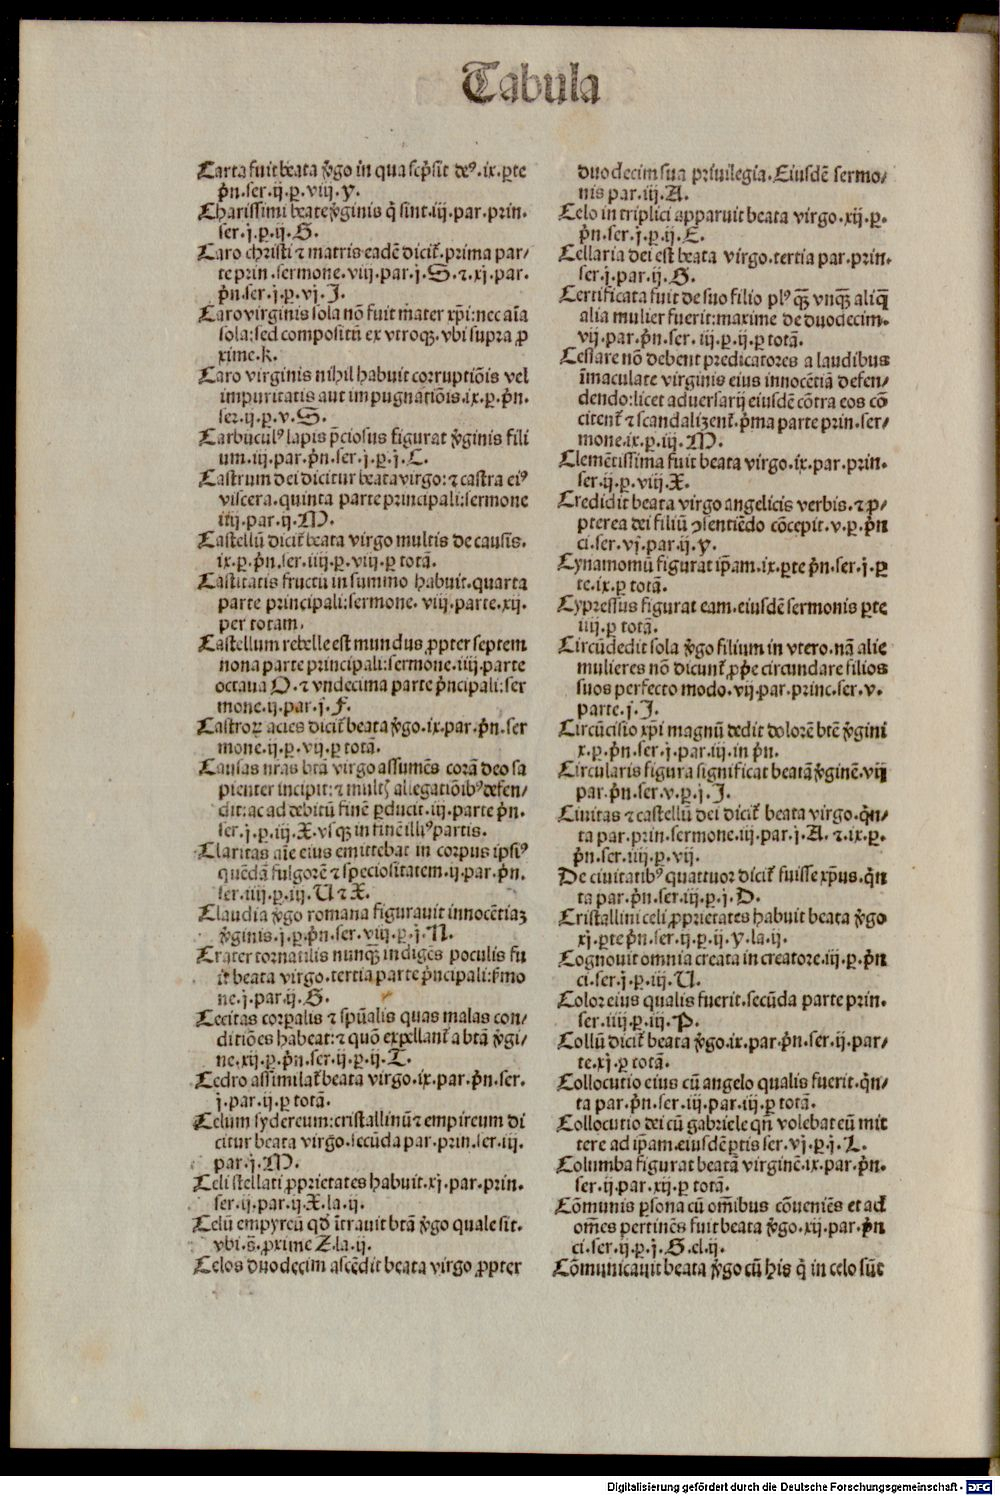 Tabula
Carta fuit beata v̄go in qua scp̄sit deꝰ.ix.ꝑte
p̄n.ser.ij.p.viij.y.
Charissimi beate v̄ginis q̄ sint.iij.par.prin.
ser.j.p.ij.G.
Caro christi ⁊ matris eadē dicit̄.prima par/
te prin.sermone.viij.par.j.S.⁊.xj.par.
p̄n.ser.j.p.vj.J.
Caro virginis sola nō fuit mater xp̄i:nec aīa
sola:sed compositū ex vtroqꝫ.vbi supra ꝓ
xime.k.
Caro virginis nihil habuit corruptiōis vel
impuritatis aut impugnatiōis.ix.p.p̄n.
ser.ij.p.v.S.
Carbūculꝰ lapis p̄ciosus figurat v̄ginis fili
um.iij.par.p̄n.ser.j.p.j.C.
Castrum dei dicitur beata virgo:⁊ castra eiꝰ
viscera.quinta parte principali:sermone
iiij.par.ij.M.
Castellū dicit̄ beata virgo multis de causis.
ix.p.p̄n.ser.iiij.p.viij.ꝑ totā.
Castitatis fructū in summo habuit.quarta
parte principali:sermone.viij.parte.xij.
per totam.
Castellum rebelle est mundus ꝓpter septem
nona parte principali:sermone.iiij.parte
octaua O.⁊ vndecima parte p̄ncipali:ser
mone.ij.par.j.F.
Castroꝝ acies dicit̄ beata v̄go.ix.par.p̄n.ser
mone.ij.p.vij.ꝑ totā.
Causas nr̄as btā virgo assumēs corā deo sa
pienter incipit:⁊ multꝭ allegatiōibꝰ defen/
dit:ac ad debitū finē ꝑducit.iij.parte p̄n.
ser.j.p.iij.X.vsqꝫ in finē illiꝰ partis.
Claritas aīe eius emittebat in corpus ipsiꝰ
quēdā fulgorē ⁊ speciositatem.ij.par.p̄n.
ser.iiij.p.iij.U ⁊ X.
Claudia v̄go romana figurauit innocētiaꝫ
v̄ginis.j.p.p̄n.ser.viij.p.j.N.
Crater tornatilis nunqꝫ indigēs poculis fu
it beata virgo.tertia parte p̄ncipali:s̄mo
ne.j.par.ij.G.
Cecitas corꝑalis ⁊ spūalis quas malas con/
ditiōes habeat:⁊ quō expellant̄ a btā v̄gi/
ne.xij.p.p̄n.ser.ij.p.ij.T.
Cedro assimilat̄ beata virgo.ix.par.p̄n.ser.
j.par.ij.ꝑ totā.
Celum sydereum:cristallinū ⁊ empireum di
citur beata virgo.secūda par.prin.ser.iij.
par.j.M.
Celi stellati ꝓprietates habuit.xj.par.prin.
ser.ij.par.ij.X.la.ij.
Celū empyreū qd̄ ītrauit btā v̄go quale sit.
vbi.s̄.ꝓxime Z.la.ij.
Celos duodecim ascēdit beata virgo ꝓpter
duodecim sua priuilegia.Eiusdē sermo/
nis par.iij.A.
Celo in triplici apparuit beata virgo.xij.p.
p̄n.ser.j.p.ij.E.
Cellaria dei est beata virgo.tertia par.prin.
ser.j.par.ij.G.
Certificata fuit de suo filio plꝰ qꝫ vnqꝫ aliq̄
alia mulier fuerit:maxime de duodecim.
vij.par.p̄n.ser.iij.p.ij.ꝑ totā.
Cessare nō debent predicatores a laudibus
īmaculate virginis eius innocētiā defen/
dendo:licet aduersarij eiusdē cōtra eos cō
citent̄ ⁊ scandalizent̄.p̄ma parte prin.ser/
mone.ix.p.iij.M.
Clemētissima fuit beata virgo.ix.par.prin.
ser.ij.p.viij.X.
Credidit beata virgo angelicis verbis.⁊ ꝓ/
pterea dei filiū ꝯsentiēdo cōcepit.v.p.p̄n
ci.ser.vj.par.ij.y.
Cynamomū figurat ip̄am.ix.ꝑte p̄n.ser.j.ꝑ
te.ix.ꝑ totā.
Cypressus figurat eam.eiusdē sermonis ꝑte
iiij.ꝑ totā.
Circūdedit sola v̄go filium in vtero.nā alie
mulieres nō dicunt̄ ꝓpe circundare filios
suos perfecto modo.vij.par.princ.ser.v.
parte.j.J.
Circūcisio xp̄i magnū dedit dolorē btē v̄gini
x.p.p̄n.ser.j.par.iij.in p̄n.
Circularis figura significat beatā v̄ginē.vij
par.p̄n.ser.v.p.j.J.
Ciuitas ⁊ castellū dei dicit̄ beata virgo.q̄n/
ta par.prin.sermone.iij.par.j.A.⁊.ix.p.
p̄n.ser.iiij.p.vij.
De ciuitatibꝰ quattuor dicit̄ fuisse xp̄us.q̄n
ta par.p̄n.ser.iij.p.j.D.
Cristallini celi ꝓprietates habuit beata v̄go
xj.ꝑte p̄n.ser.ij.p.ij.y.la.ij.
Cognouit omnia creata in creatore.iij.p.p̄n
ci.ser.j.p.iij.U.
Color eius qualis fuerit.secūda parte prin.
ser.iiij.p.iij.P.
Collū dicit̄ beata v̄go.ix.par.p̄n.ser.ij.par/
te.xj.ꝑ totā.
Collocutio eius cū angelo qualis fuerit.q̄n/
ta par.p̄n.ser.iij.par.iij.ꝑ totā.
Collocutio dei cū gabriele qn̄ volebat eū mit
tere ad ip̄am.eiusdē ꝑtis ser.vj.p.j.L.
Columba figurat beatā virginē.ix.par.p̄n.
ser.ij.par.xij.ꝑ totā.
Cōmunis ꝑsona cū om̄ibus cōueniēs et ad
om̄es pertinēs fuit beata v̄go.xij.par.p̄n
ci.ser.ij.p.j.G.el.ij.
Cōmunicauit beata v̄go cū his q̄ in celo sūt
Digitalisierung gefördert durch die Deutsche Forschungsgemeinschaft - DFG